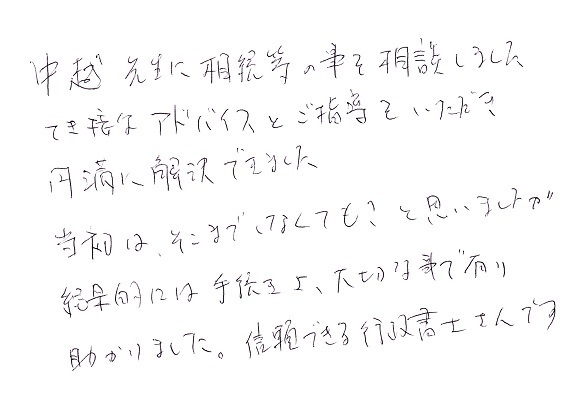 中越 先生に相続等の事を相談しました
てき接な アドバイスとご指導をいただき
円満に解決できました
当初は、そこまでしなくても？と思いましたが
結果的には手続きも、大切な事で有り
助かりました。信頼できる行政書士さんです